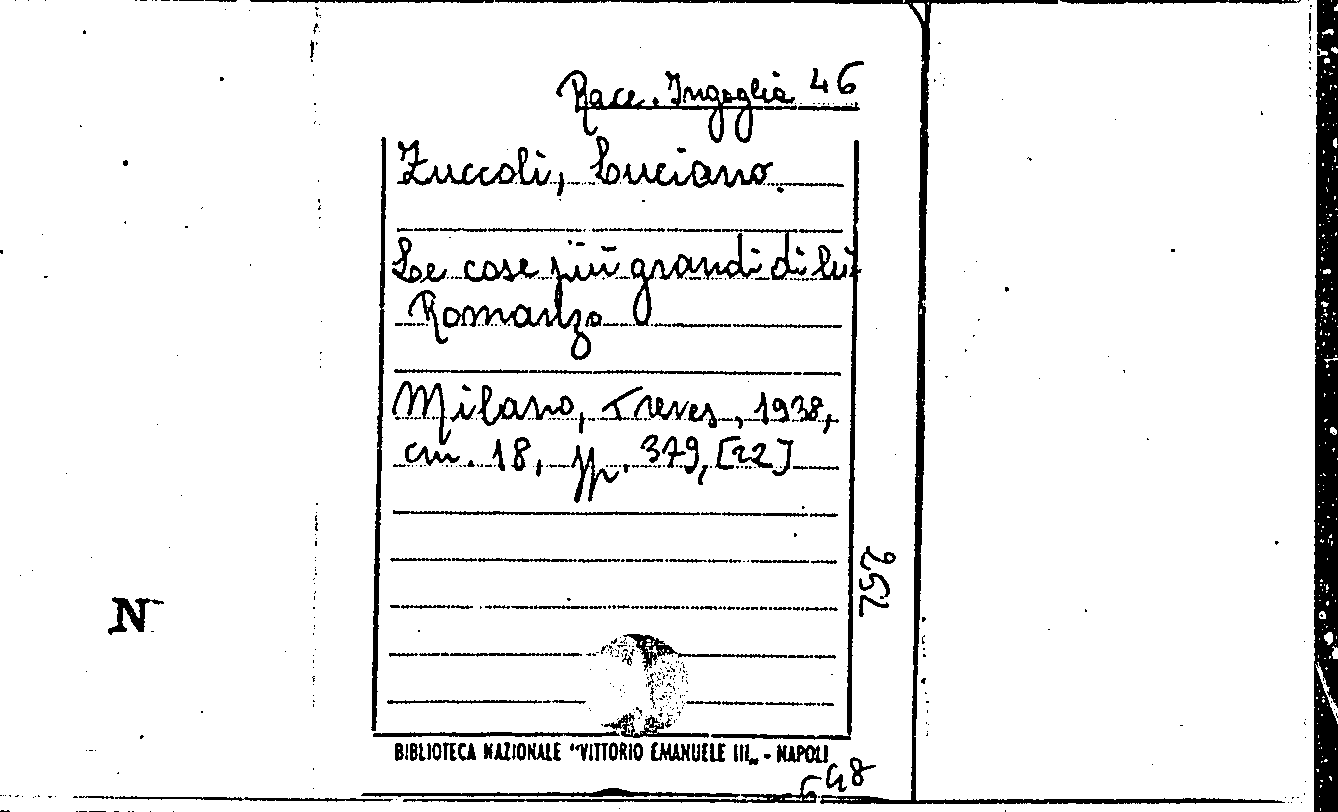 Racc. Ingoglia 46
Zuccoli, Luciano.
Le cose più grandi di lui.
Romanzo
Milano, Treves, 1938,
cm. 18, pp. 379, [22]
252
N
BIBLIOTECA NAZIONALE "VITTORIO EMANUELE III„ - NAPOLI